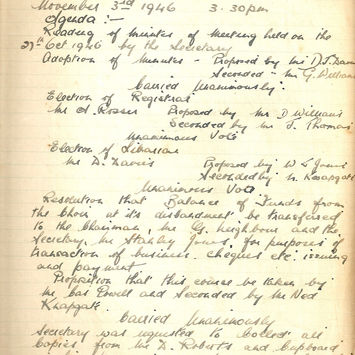 November 3rd 1946 3.30pm
Agenda :-
Reading of minutes of meeting held on the
27th Oct 1946 by the Secretary
Adoption of minutes - Proposed by Mr D.J.
Seconded - Mr G. Williams
Carried Unanimously.
Election of Registrar
Mr A. Rosser Proposed by Mr D Williams
Seconded by Mr J. Thomas
Unanimous Vote
Election of Librarian
Mr D. Davies Proposed by W J Jones
Seconded by N. Knapgate
Unanimous Vote
Resolution that Balance of Funds from
the Choir at its disbandment be transferred
to the Chairman, Mr G. Neighbour and the
Secretary, Mr Stanley Jones, for purposes of
transaction of business cheques etc. issuing
and payment
Proposition that this course be taken by
Mr Powell and Seconded by Mr Ned
Knapgate
Carried Unanimously
Secretary was requested to collect all
Copies from Mr D. Roberts and Cupboard